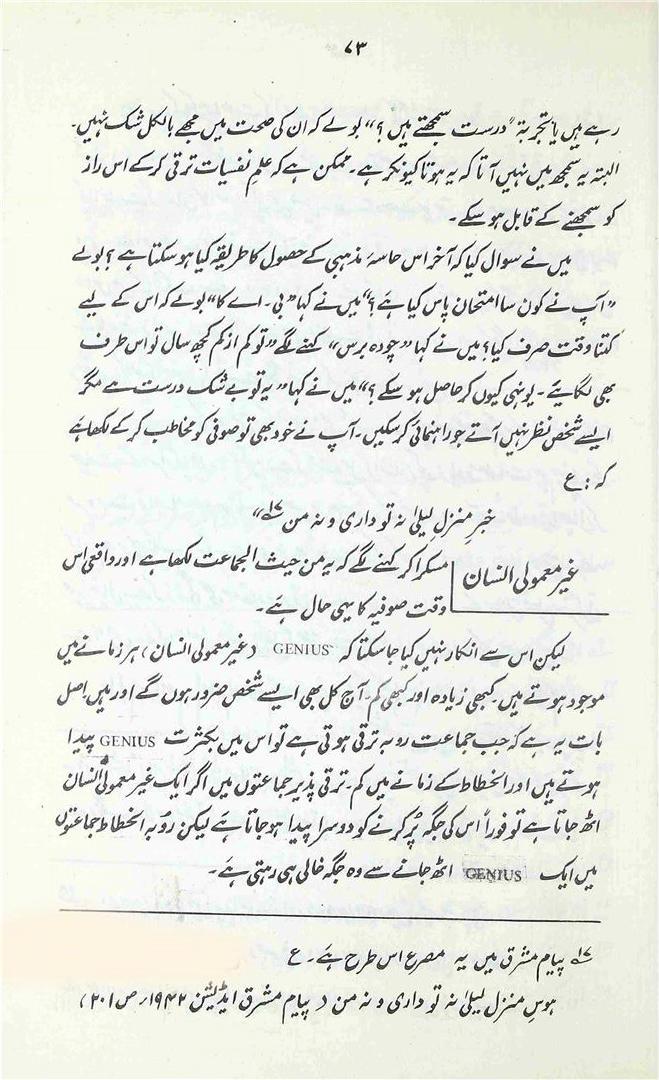 ۷۳
رہے ہیں یا تجربۃً درست سمجھتے ہیں؟“ بولے کہ ان کی صحت میں مجھے بالکل شک نہیں۔
البتہ یہ سمجھ میں نہیں آتا کہ یہ ہوتا کیونکر ہے۔ ممکن ہے کہ علمِ نفسیات ترقی کر کے اس راز
کو سمجھنے کے قابل ہو سکے۔
میں نے سوال کیا کہ آخر اس حاسۂ مذہبی کے حصول کا طریقہ کیا ہو سکتا ہے؟ بولے
”آپ نے کون سا امتحان پاس کیا ہے؟“ میں نے کہا ”بی۔ اے کا“ بولے کہ اس کے لیے
کتنا وقت صرف کیا؟ میں نے کہا ”چودہ برس“ کہنے لگے ”تو کم از کم کچھ سال تو اس طرف
بھی لگائیے۔ یونہی کیوں کر حاصل ہو سکے؟“ میں نے کہا ”یہ تو بے شک درست ہے مگر
ایسے شخص نظر نہیں آتے جو راہنمائی کر سکیں۔ آپ نے خود بھی تو صوفی کو مخاطب کر کے لکھا ہے
کہ: ع
خبرِ منزلِ لیلیٰ نہ تو داری و نہ من ؎۱“
غیر معمولی انسان مسکرا کر کہنے لگے کہ یہ من حیث الجماعت لکھا ہے اور واقعی اس
وقت صوفیہ کا یہی حال ہے۔
لیکن اس سے انکار نہیں کیا جا سکتا کہ GENIUS (غیر معمولی انسان) ہر زمانے میں
موجود ہوتے ہیں۔ کبھی زیادہ اور کبھی کم۔ آج کل بھی ایسے شخص ضرور ہوں گے اور میں اصل
بات یہ ہے کہ جب جماعت رو بہ ترقی ہوتی ہے تو اس میں بکثرت GENIUS پیدا
ہوتے ہیں اور انحطاط کے زمانے میں کم۔ ترقی پذیر جماعتوں میں اگر ایک غیر معمولی انسان
اٹھ جاتا ہے تو فوراً اس کی جگہ پُر کرنے کو دوسرا پیدا ہو جاتا ہے لیکن رو بہ انحطاط جماعتوں
میں ایک GENIUS اٹھ جانے سے وہ جگہ خالی ہی رہتی ہے۔
؎۱ پیامِ مشرق میں یہ مصرع اس طرح ہے۔ ع
ہوسِ منزلِ لیلیٰ نہ تو داری و نہ من (پیام مشرق ایڈیشن ۱۹۴۲ء ص ۲۰۱)